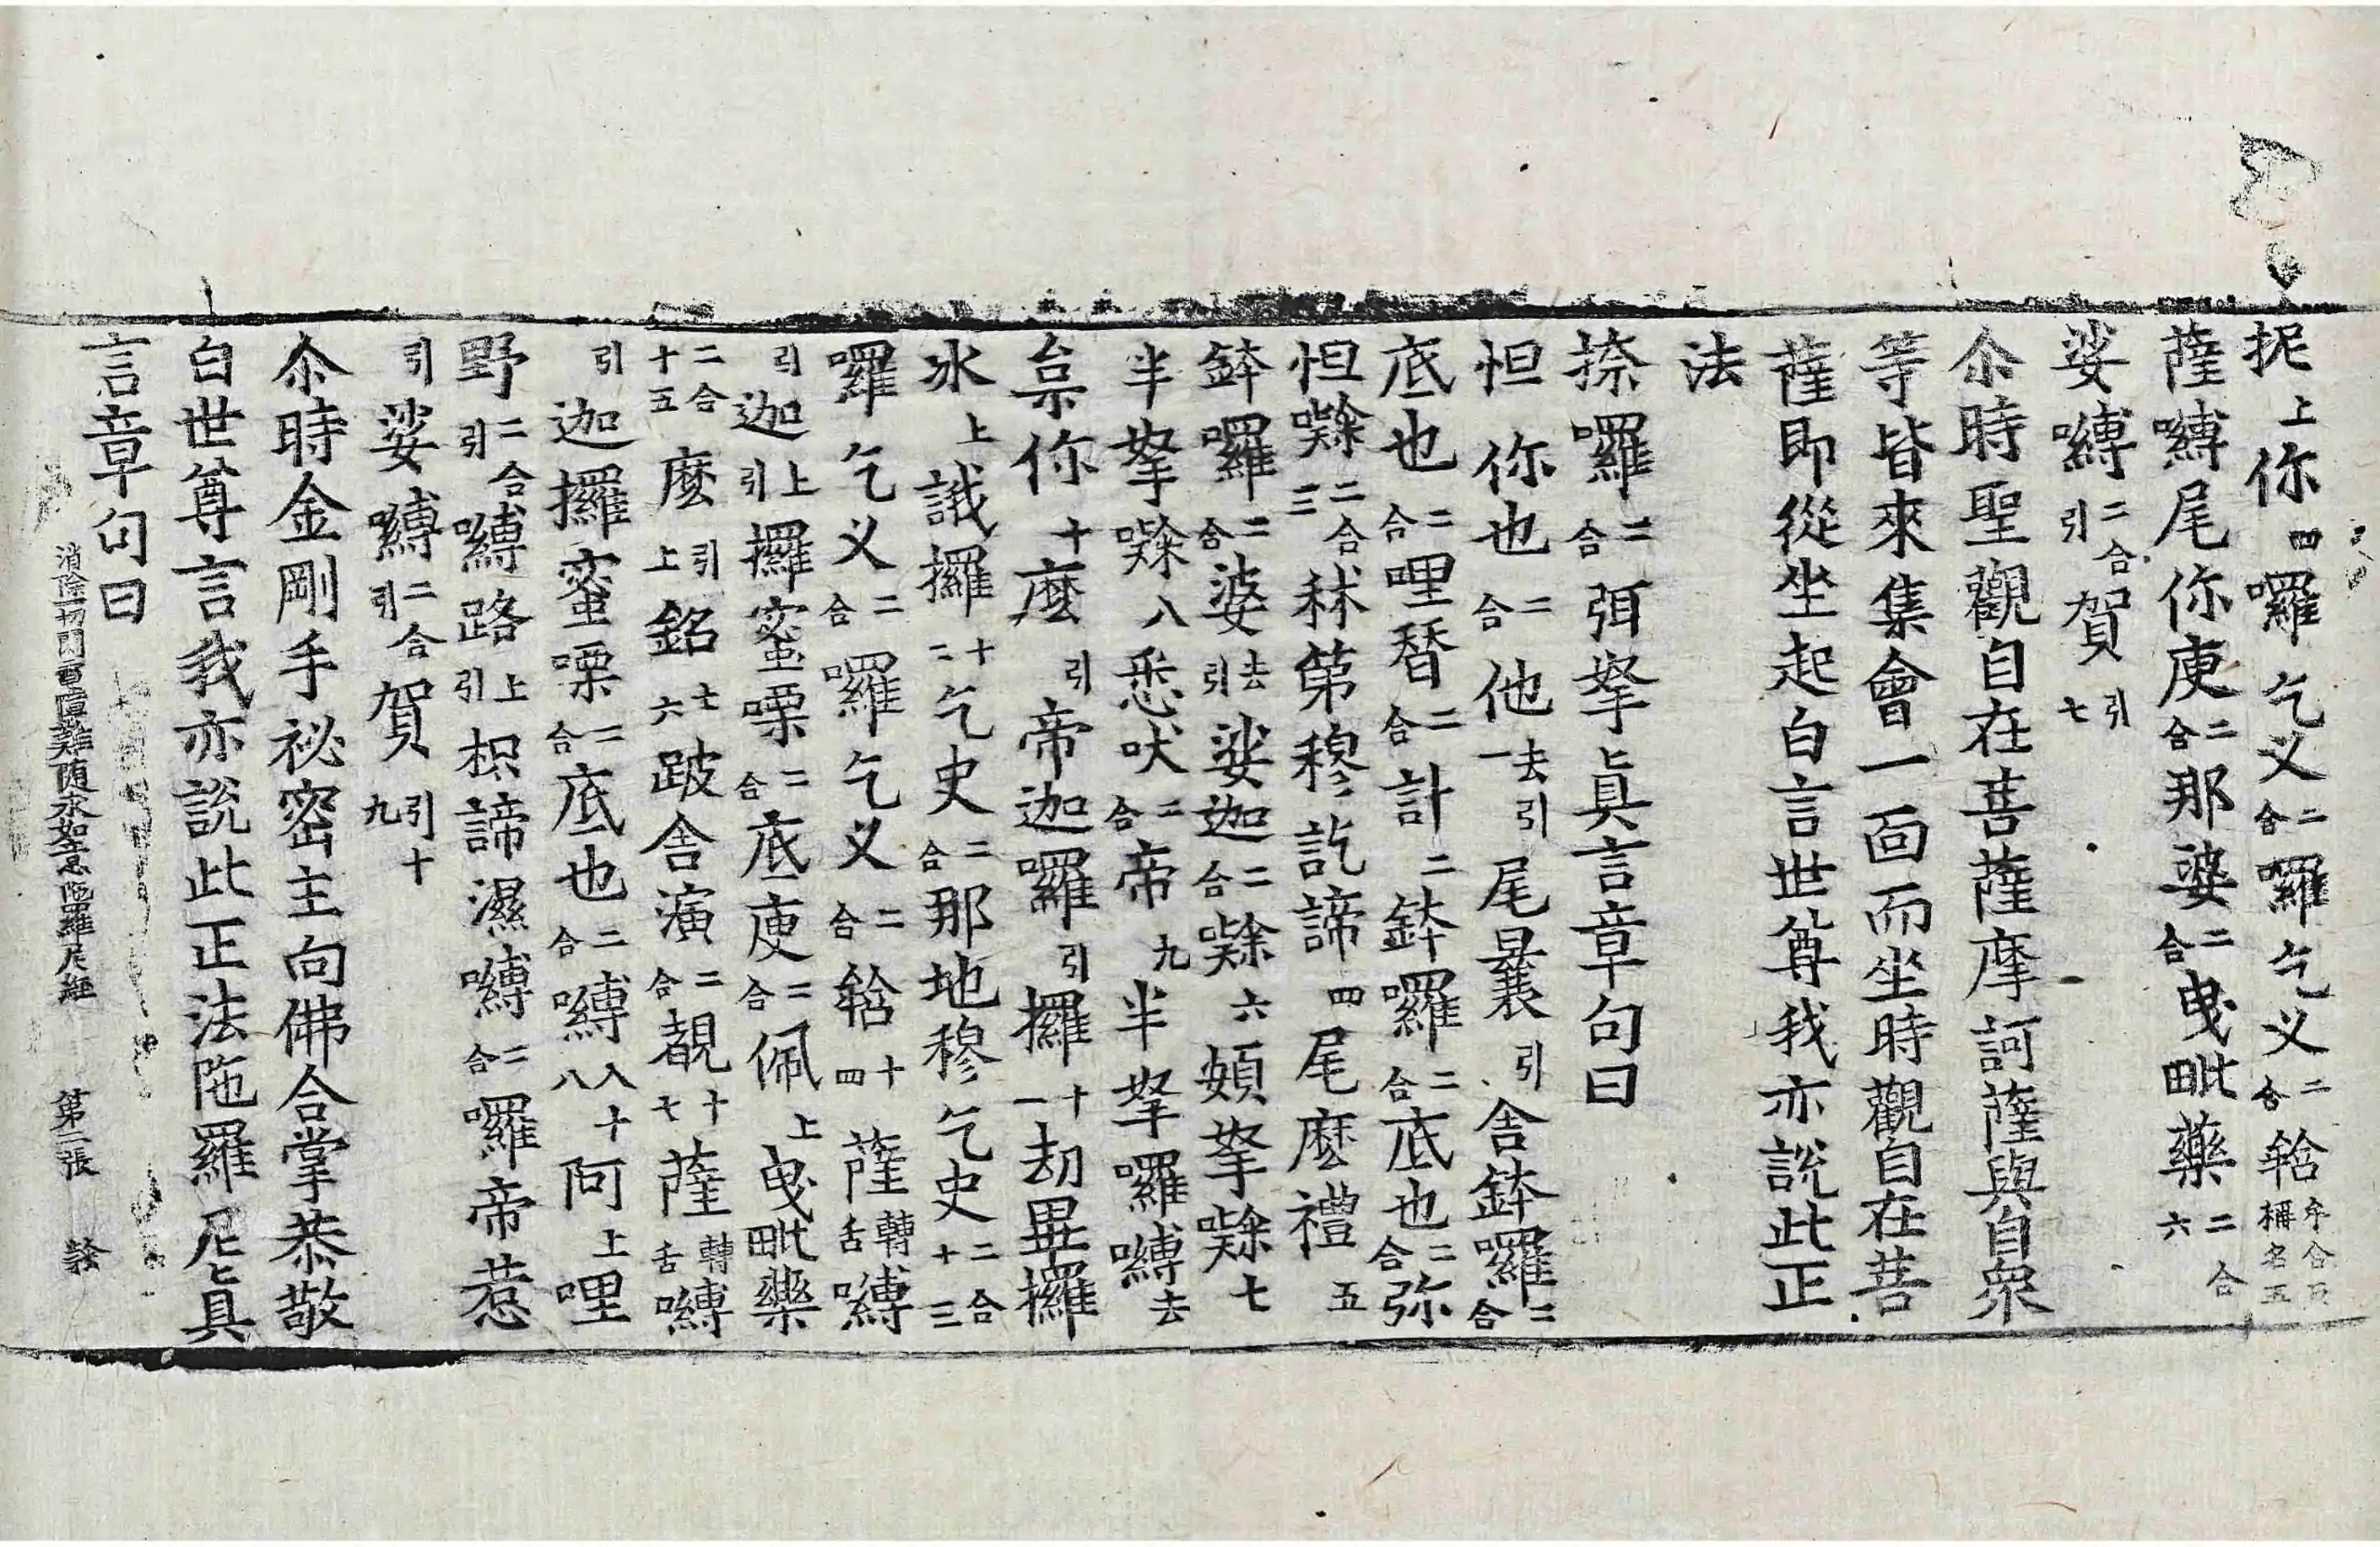 抳上你四囉乞义二合囉乞义二合𤚥牟含反稱名五
薩嚩尾你庾二合那婆二合曳毗藥二合六
娑嚩二合引賀引七
尒時聖觀自在菩薩摩訶薩與自眾
等皆來集會一面而坐時觀自在菩
薩即從坐起白言世尊我亦說此正
法
捺囉二合弭拏真言章句曰
怛你也二合他去引一尾曩引舍鉢囉二合
底也二合哩替二合計二鉢囉二合底也二合弥
怛㘑二合三秫第穆訖諦四尾麽禮五
鉢囉二合婆去引娑迦二合㘑六頞拏㘑七
半拏㘑八悉吠二合帝九半拏囉嚩去
枲你十麽引帝迦囉引攞十一劫畢攞
氷上誐攞十二乞史二合那地穆乞史二合十三
囉乞义二合囉乞义二合𤚥十四薩轉舌嚩
引迦上引攞蜜㗚二合底庾二合佩上曳毗藥
二合十五麽引上銘七六跛舍演二合覩十七薩轉舌嚩
引迦攞蜜㗚二合底也二合嚩入十八阿上哩
野二合引嚩路上引枳諦濕嚩二合囉帝惹
引娑嚩二合引賀引十九
尒時金剛手祕密主向佛合掌恭敬
白世尊言我亦說此正法陁羅尼真
言章句曰
消除一切閃電障難随求如意陁羅尼經 第二張